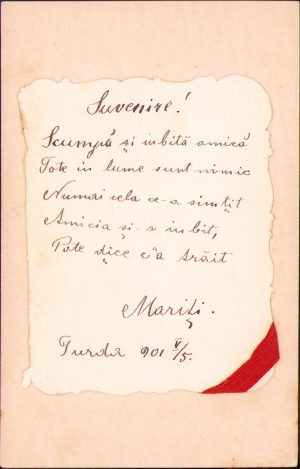 Suvenire!
Scumpă și iubită amică
Tote in lume sunt nimic
Numai cela ce-a simțit
Amicia și-a iubit,
Pote dice c'a trăit
Mariți.
Turda 901 V/5.